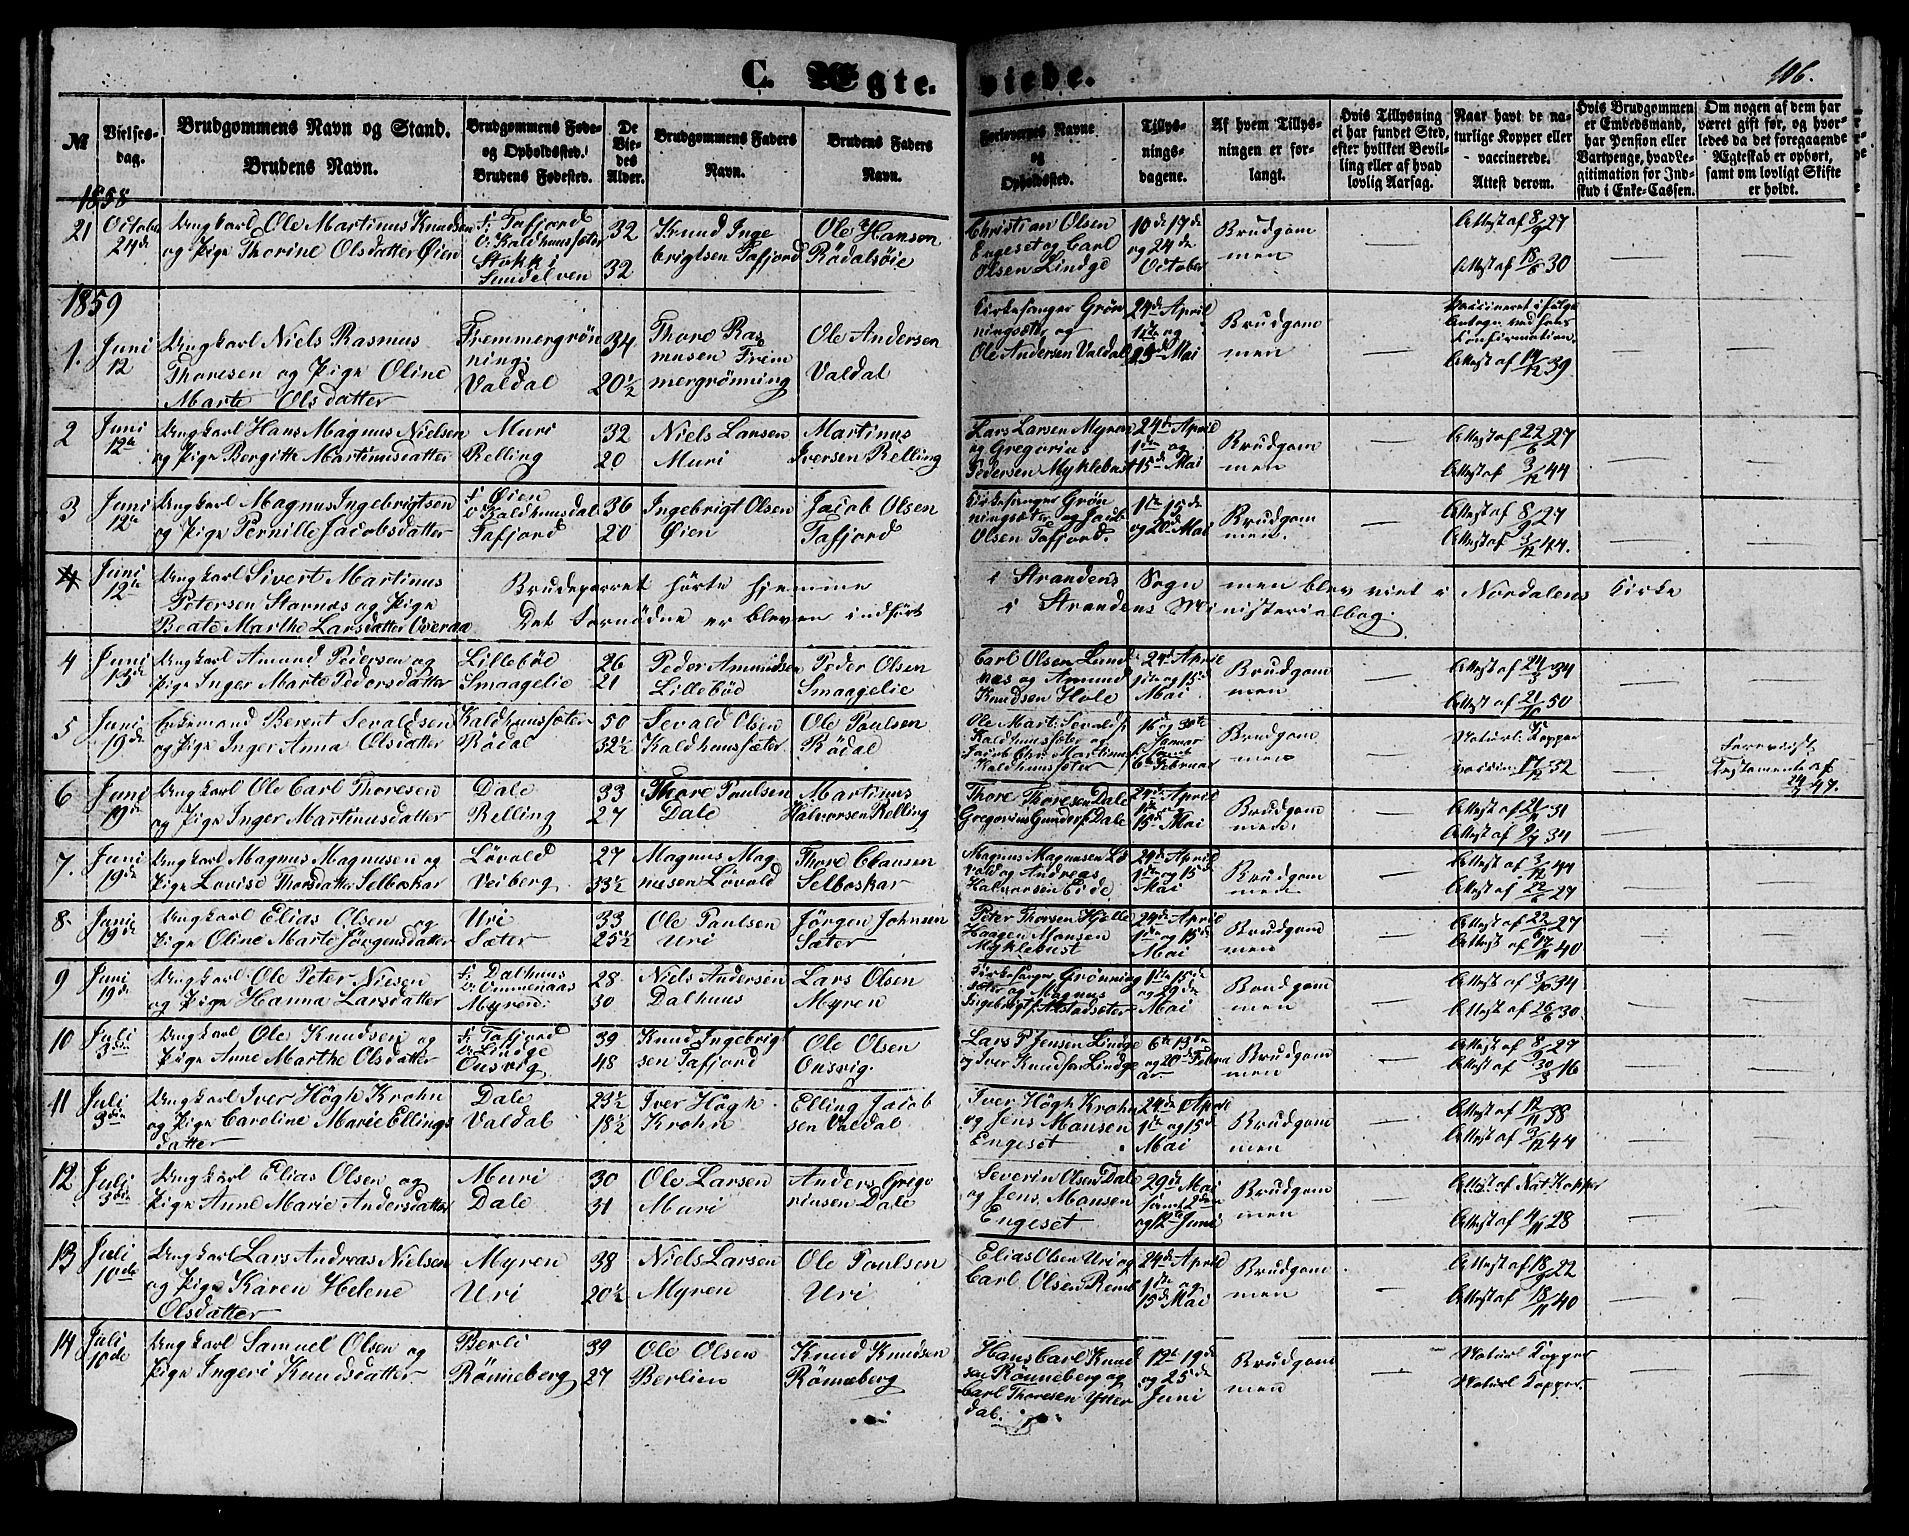 C. Ægteviede.
106.
№
Vielsesdag.
Brudgommens Navn og Stand.
Brudens Navn.
Brudgommens Føde- og Opholdssted.
Brudens Fødested.
De Viedes Alder.
Brudgommens Faders Navn.
Brudens Faders Navn.
Forlovernes Navne og Opholdssted.
Tillysningsdagene.
Af hvem Tillysningen er forlangt.
Hvis Tillysning ei har fundet Sted, efter hvilken Bevilling eller af hvad lovlig Aarsag.
Naar havt de naturlige Kopper eller vaccinerede.
Attest derom.
Hvis Brudgommen er Embedsmand, har Pension eller Vartpenge, hvad Legitimation for Indskud i Enke-Cassen.
Om nogen af dem har været gift før, og hvorledes da det foregaaende Ægteskab er ophørt, samt om lovligt Skifte er holdt.
1858
21 October 24de Ungkarl Ole Martinus Knudsen og Pige Thorine Olsdatter Øien
f: Tafjord o: Kaldhussæter Stokke Sundelven
32 32
Knud Ingebrigtsen Tafjord
Ole Hansen Rödalsöie
Christian Olsen Engeset og Carl Olsen Lindge
10de 17de og 24de October
Brudgommen
Attest af 8/9 27
Attest af 18/6 30
1859
1. Juni 12 Ungkarl Niels Rasmus Thoresen og Pige Oline Marte Olsdatter
Fremmergrönning: Valdal
34 20½
Thore Rasmusen Fremmergrönning
Ole Andersen Valdal
Kirkesanger Grönningsæter og Ole Andersen Valdal
24de April 1ste og 15de Mai
Brudgommen
Vaccineret ifölge Antegn. ved hans Konfirmation.
Attest af 14/12 39
2 Juni 12te Ungkarl Hans Magnus Nielsen og Pige Bergitte Martinusdatter
Muri Relling
32 20
Niels Larsen Muri
Martinus Iversen Relling
Lars Larsen Myren og Gregorius Pedersen Myklebust
24de April 1ste og 15de Mai
Brudgommen
Attest af 22/6 27
Attest af 3/12 44
3 Juni 12te Ungkarl Magnus Ingebrigtsen og Pige Pernille Jacobsdatter
f: Øien o: Kaldhusdal Tafjord
36 20
Ingebrigt Olsen Øien
Jacob Olsen Tafjord
Kirkesanger Grönningsæter og Jacob Olsen Tafjord.
1ste 15de og 20de Mai
Brudgommen.
Attest af 8/9 27
Attest af 3/12 44.
4 Juni 12te Ungkarl Sivert Martinus Petersen Stavnæs og Pige Beate Marthe Larsdatter Overaa
Brudeparret hörte hjemme i Strandens Sogn men blev viet i Nordalens Kirke
Det Fornödne er bleven indfört i Strandens Ministerialbog.
4 Juni 13de Ungkarl Amund Pedersen og Pige Inger Marte Pedersdatter
Lilleböe Smaagelie
26 21
Peder Amundsen Lilleböe
Peder Olsen Smaagelie
Carl Olsen Lundnæs og Amund Knudsen Hole
24de April 1ste og 15de Mai
Brudgommen
Attest af 24/3 34
Attest af 21/10 50
5 Juni 19de Enkemand Berent Sevaldsen og Pige Inger Anna Olsdatter
Kaldhussæter Rödal
50 32½
Sevald Olsen Kaldhussæter
Ole Paulsen Rödal
Ole Mart: Sevalds: Kaldhussæter og Jacob Chr. Martinus Kaldhussæter
16 og 30te Januar samt 6te Februar
Brudgommen
Naturl. Kopper
vaccin: 17/12 32
Forevist Testamente af 24/7 47.
6 Juni 19de Ungkarl Ole Carl Thoresen og Pige Inger Martinusdatter
Dale Relling
33 27
Thore Paulsen Dale
Martinus Halvorsen Relling
Thore Thoresen Dale Gregorius Gunders. Dale
24de April 1ste og 15de Mai
Brudgommen.
Attest af 21/11 31
Attest af 2/7 34
7. Juni 19de Ungkarl Magnus Magnusen og Pige Lovise Thorsdatter Selboskar
Lövold Veiberg
27 33½
Magnus Magnusen Lövold
Thore Clausen Selboskar
Magnus Magnusen Lövold og Andreas Halvorsen Eide
24de April 1ste og 15de Mai
Brudgommen
Attest af 3/12 44
Attest af 22/6 27
8. Juni 19de Ungkarl Elias Olsen og Pige Oline Marte Jörgensdatter
Uri Sæter
33 25½
Ole Paulsen Uri
Jörgen Johnsen Sæter
Peter Thorsen Hjelle Haagen Monsen Myklebust
24de April 1ste og 15de Mai
Brudgommen
Attest af 22/6 27
Attest af 17/11 40
9 Juni 19de Ungkarl Ole Peter Nielsen og Pige Hanna Larsdatter
f: Dalhuus o: Ommenaas Myren:
28. 30
Niels Andersen Dalhuus
Lars Olsen Myren
Kirkesanger Grönningsæter og Magnus Ingebrigts. Alstadsæter
1ste 15de og 29de Mai
Brudgommen
Attest af 3/10 34
Attest af 26/6 30.
10 Juli 3die Ungkarl Ole Knudsen og Pige Anne Marthe Olsdatter
f: Tafjord o: Lindge Onsvig
39 48
Knud Ingebrigtsen Tafjord
Ole Olsen Onsvig.
Lars P. Jensen Lindge og Iver Knudsen Lindge
6te 13de og 20de Februar
Brudgommen
Attest af 8/9 27
Attest af 30/3 16
11 Juli 3die Ungkarl Iver Högh Krohn og Pige Caroline Marie Ellingsdatter
Dale Valdal
23½ 18½
Iver Högh Krohn
Elling Jacobsen Valdal
Iver Högh Krohn og Jens Monsen Engeset
24de April 1ste og 15de Mai
Brudgommen
Attest af 12/11 38
Attest af 3/12 44
12 Juli 3die Ungkarl Elias Olsen og Pige Anne Marie Andersdatter
Muri Dale
30 31
Ole Larsen Muri
Anders Grigoriusen Dale
Severin Olsen Dale og Jens Monsen Engeset
29de Mai samt 2den og 12te Juni
Brudgommen
Attest af Nat. Kopper
Attest af 4/11 28
13 Juli 10de Ungkarl Lars Andreas Nielsen og Pige Karen Helene Olsdatter
Myren Uri
38 20½
Niels Larsen Myren
Ole Paulsen Uri
Elias Olsen Uri og Carl Olsen Rem
24de April 1ste og 15de Mai
Brudgommen
Attest af 18/9 22
Attest af 18/11 40
14 Juli 10de Ungkarl Samuel Olsen og Pige Ingeri Knudsdatter
Berli Rönneberg
39 27
Ole Olsen Berlien
Knud Knudsen Rönneberg
Hans Carl Knudsen Rönneberg og Carl Thoresen Ytterdal.
12te 19de og 25de Juni
Brudgommen
Naturl Kopper
Naturl Kopper.